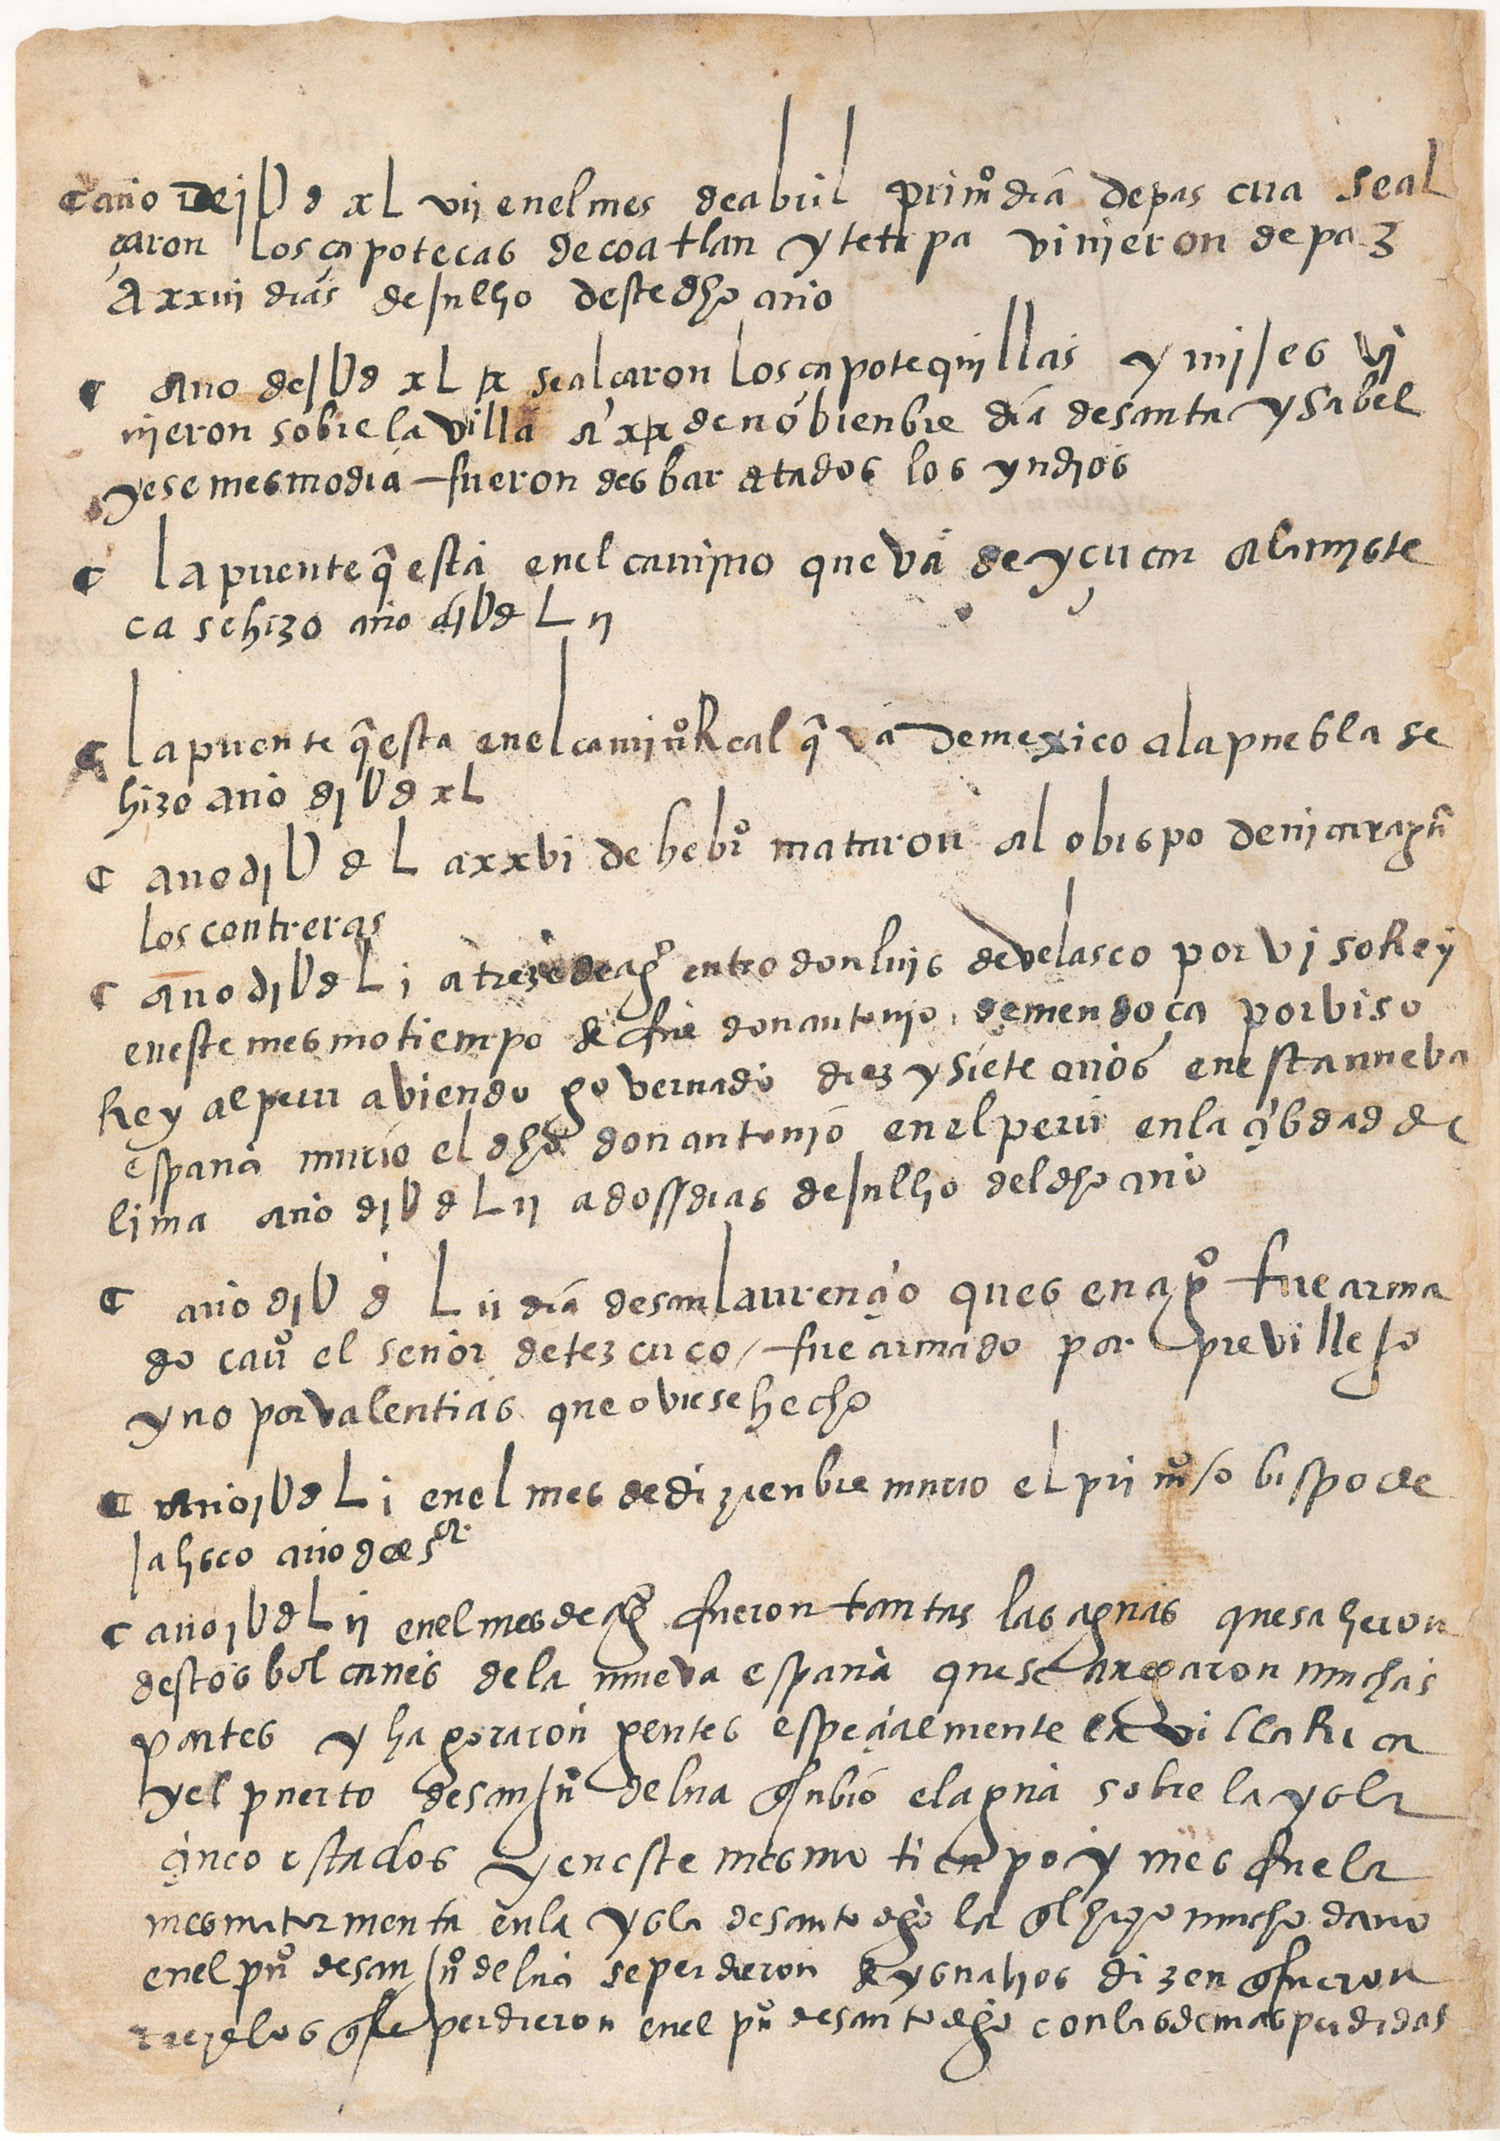 año de jU d xL vij en el mes de abril primo dia de pascua se al
çaron los çapotecas de coatlan y tetipa vinieron de paz
A xxiii dias de Jullio deste dho año
año de jU d xL ix se alçaron los çapotequillas y mijes vi
nieron sobre la villa a xix de nobienbre dia de santa ysabel
y ese mesmo dia fueron desbaratados los yndios
la puente q esta en el camino que va de yçucar a la miste
ca se hizo año djU d L ij
la puente q esta en el camino Real q va de mexico a la puebla se
hizo año djU d xL
año djU d L a xxvi de hebro mataron al obispo de nicaragua
los contreras
año djU d L i a treze de ago entro don luis de velasco por viso Rey
en este mesmo tiempo se fue don antonio de mendoça por viso
Rey al peru abiendo governado diez y siete años en esta nueva
españa murio el dho don antonio en el peru en la çibdad de
lima año djU d L ij a doss dias de Jullio del dho año
año djU d L ij dia de san laurençio ques en ago fue arma
do cauo el señor de tezcuco / fue armado por previllejo
y no por valentias que oviese hecho
año jU d L i en el mes de dizienbre murio el primo obispo de
Jalisco
año jU d L ij en el mes de ago fueron tantas las aguas que salieron
destos bolcanes de la nueva españa que se anegaron muchas
partes y hagoraron gentes espeçialmente la villa Rica
y el puerto de san Juº de lua q subio el agua sobre la ysla
çinco estados y en este mesmo tienpo y mes fue la
mesma tormenta en la ysla de santo dgo la ql hizo mucho daño
en el puo de san Juº de lua se perdieron seys navios dizen q fueron
los q se perdieron en el puo de santo dgo con las demas perdidas